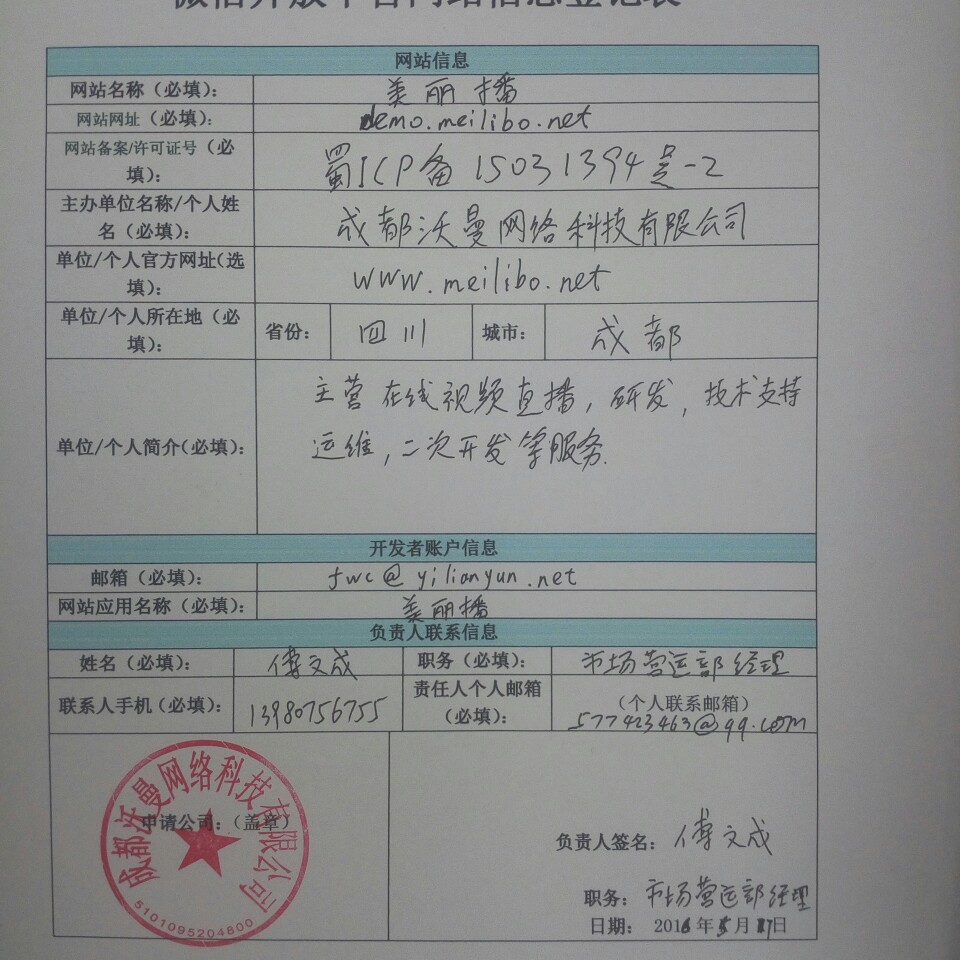 微信开放平台网站信息登记表
网站信息
网站名称（必填）： 美丽播
网站网址（必填）： demo.meilibo.net
网站备案/许可证号（必
填）： 蜀ICP备15031394号-2
主办单位名称/个人姓
名（必填）： 成都沃曼网络科技有限公司
单位/个人官方网址（选
填）： www.meilibo.net
单位/个人所在地（必
填）： 省份： 四川 城市： 成都
单位/个人简介（必填）： 主营在线视频直播，研发，技术支持
运维，二次开发等服务.
开发者账户信息
邮箱（必填）： fwc@yilianyun.net
网站应用名称（必填）： 美丽播
负责人联系信息
姓名（必填）： 傅文成 职务（必填）： 市场营运部经理
联系人手机（必填）： 13980756755 责任人个人邮箱
（必填）： （个人联系邮箱）
577423463@qq.com
成都沃曼网络科技有限公司
申请公司：（盖章）
5101095204800
负责人签名： 傅文成
职务： 市场营运部经理
日期： 2016年5月17日